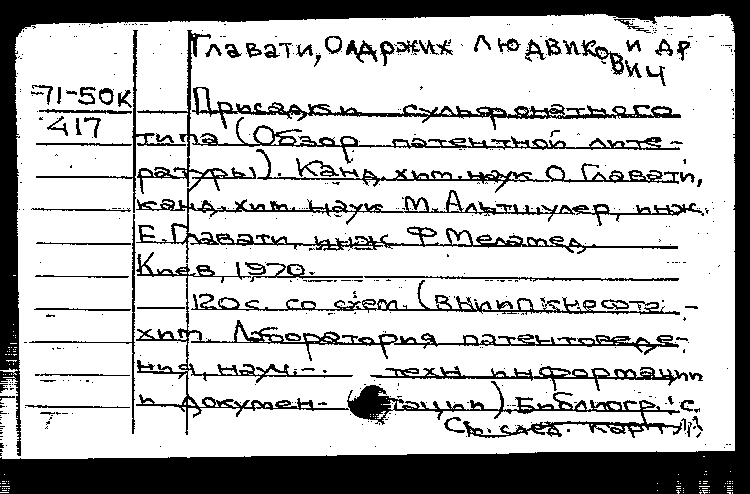 Главати, Олдржих Людвикович и др
71-50к
417
Присадки сульфонатного
типа. (Обзор патентной лите-
ратуры). Канд. хим. наук О. Главати,
канд. хим. наук М. Альтшулер, инж.
Е. Главати, инж Ф. Меламед.
Киев, 1970.
120 с. со схем. (ВНИИПКнефте-
хим. Лаборатория патентоведе-
ния, науч.- техн информации
и докумен- тации). Библиогр.: с.
См. след. карт